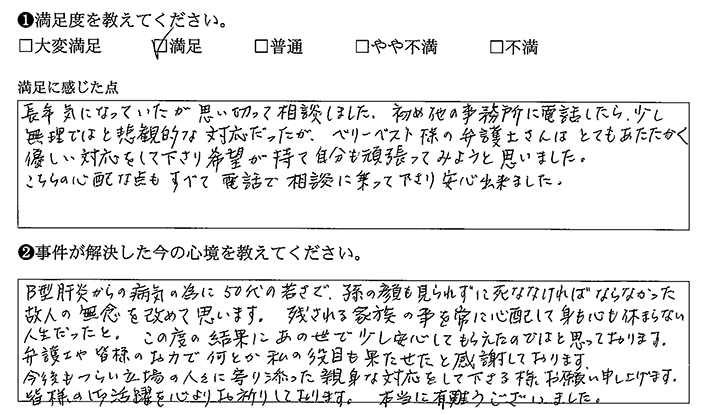 ❶満足度を教えてください。
□大変満足 ☑満足 □普通 □やや不満 □不満
満足に感じた点
長年気になっていたが思い切って相談しました。初め他の事務所に電話したら、少し
無理ではと悲観的な対応だったが、ベリーベスト様の弁護士さんはとてもあたたかく
優しい対応をして下さり希望が持て自分も頑張ってみようと思いました。
こちらの心配な点もすべて電話で相談に乗って下さり安心出来ました。
❷事件が解決した今の心境を教えてください。
B型肝炎からの病気の為に50代の若さで、孫の顔も見られずに死ななければならなかった
故人の無念を改めて思います。残される家族の事を常に心配して身も心も休まらない
人生だったと。この度の結果にあの世で少し安心してもらえたのではと思っております。
弁護士や皆様のお力で何とか私の役目も果たせたと感謝しております。
今後もつらい立場の人々に寄り添った親身な対応をして下さる様、お願い申し上げます。
皆様の御活躍を心よりお祈りしております。本当に有難うございました。